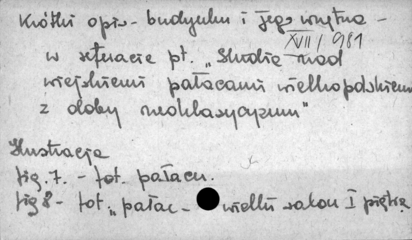 Krótki opis - budynku i jego wnętrza -
XVII/1981
w referacie pt. "Studia nad
wiejskiemi pałacami wielkopolskiemi
z doby neoklasycyzmu"
Ilustracje
fig. 7. - fot. pałacu.
fig 8 - fot. "pałac - wielki salon I piętra